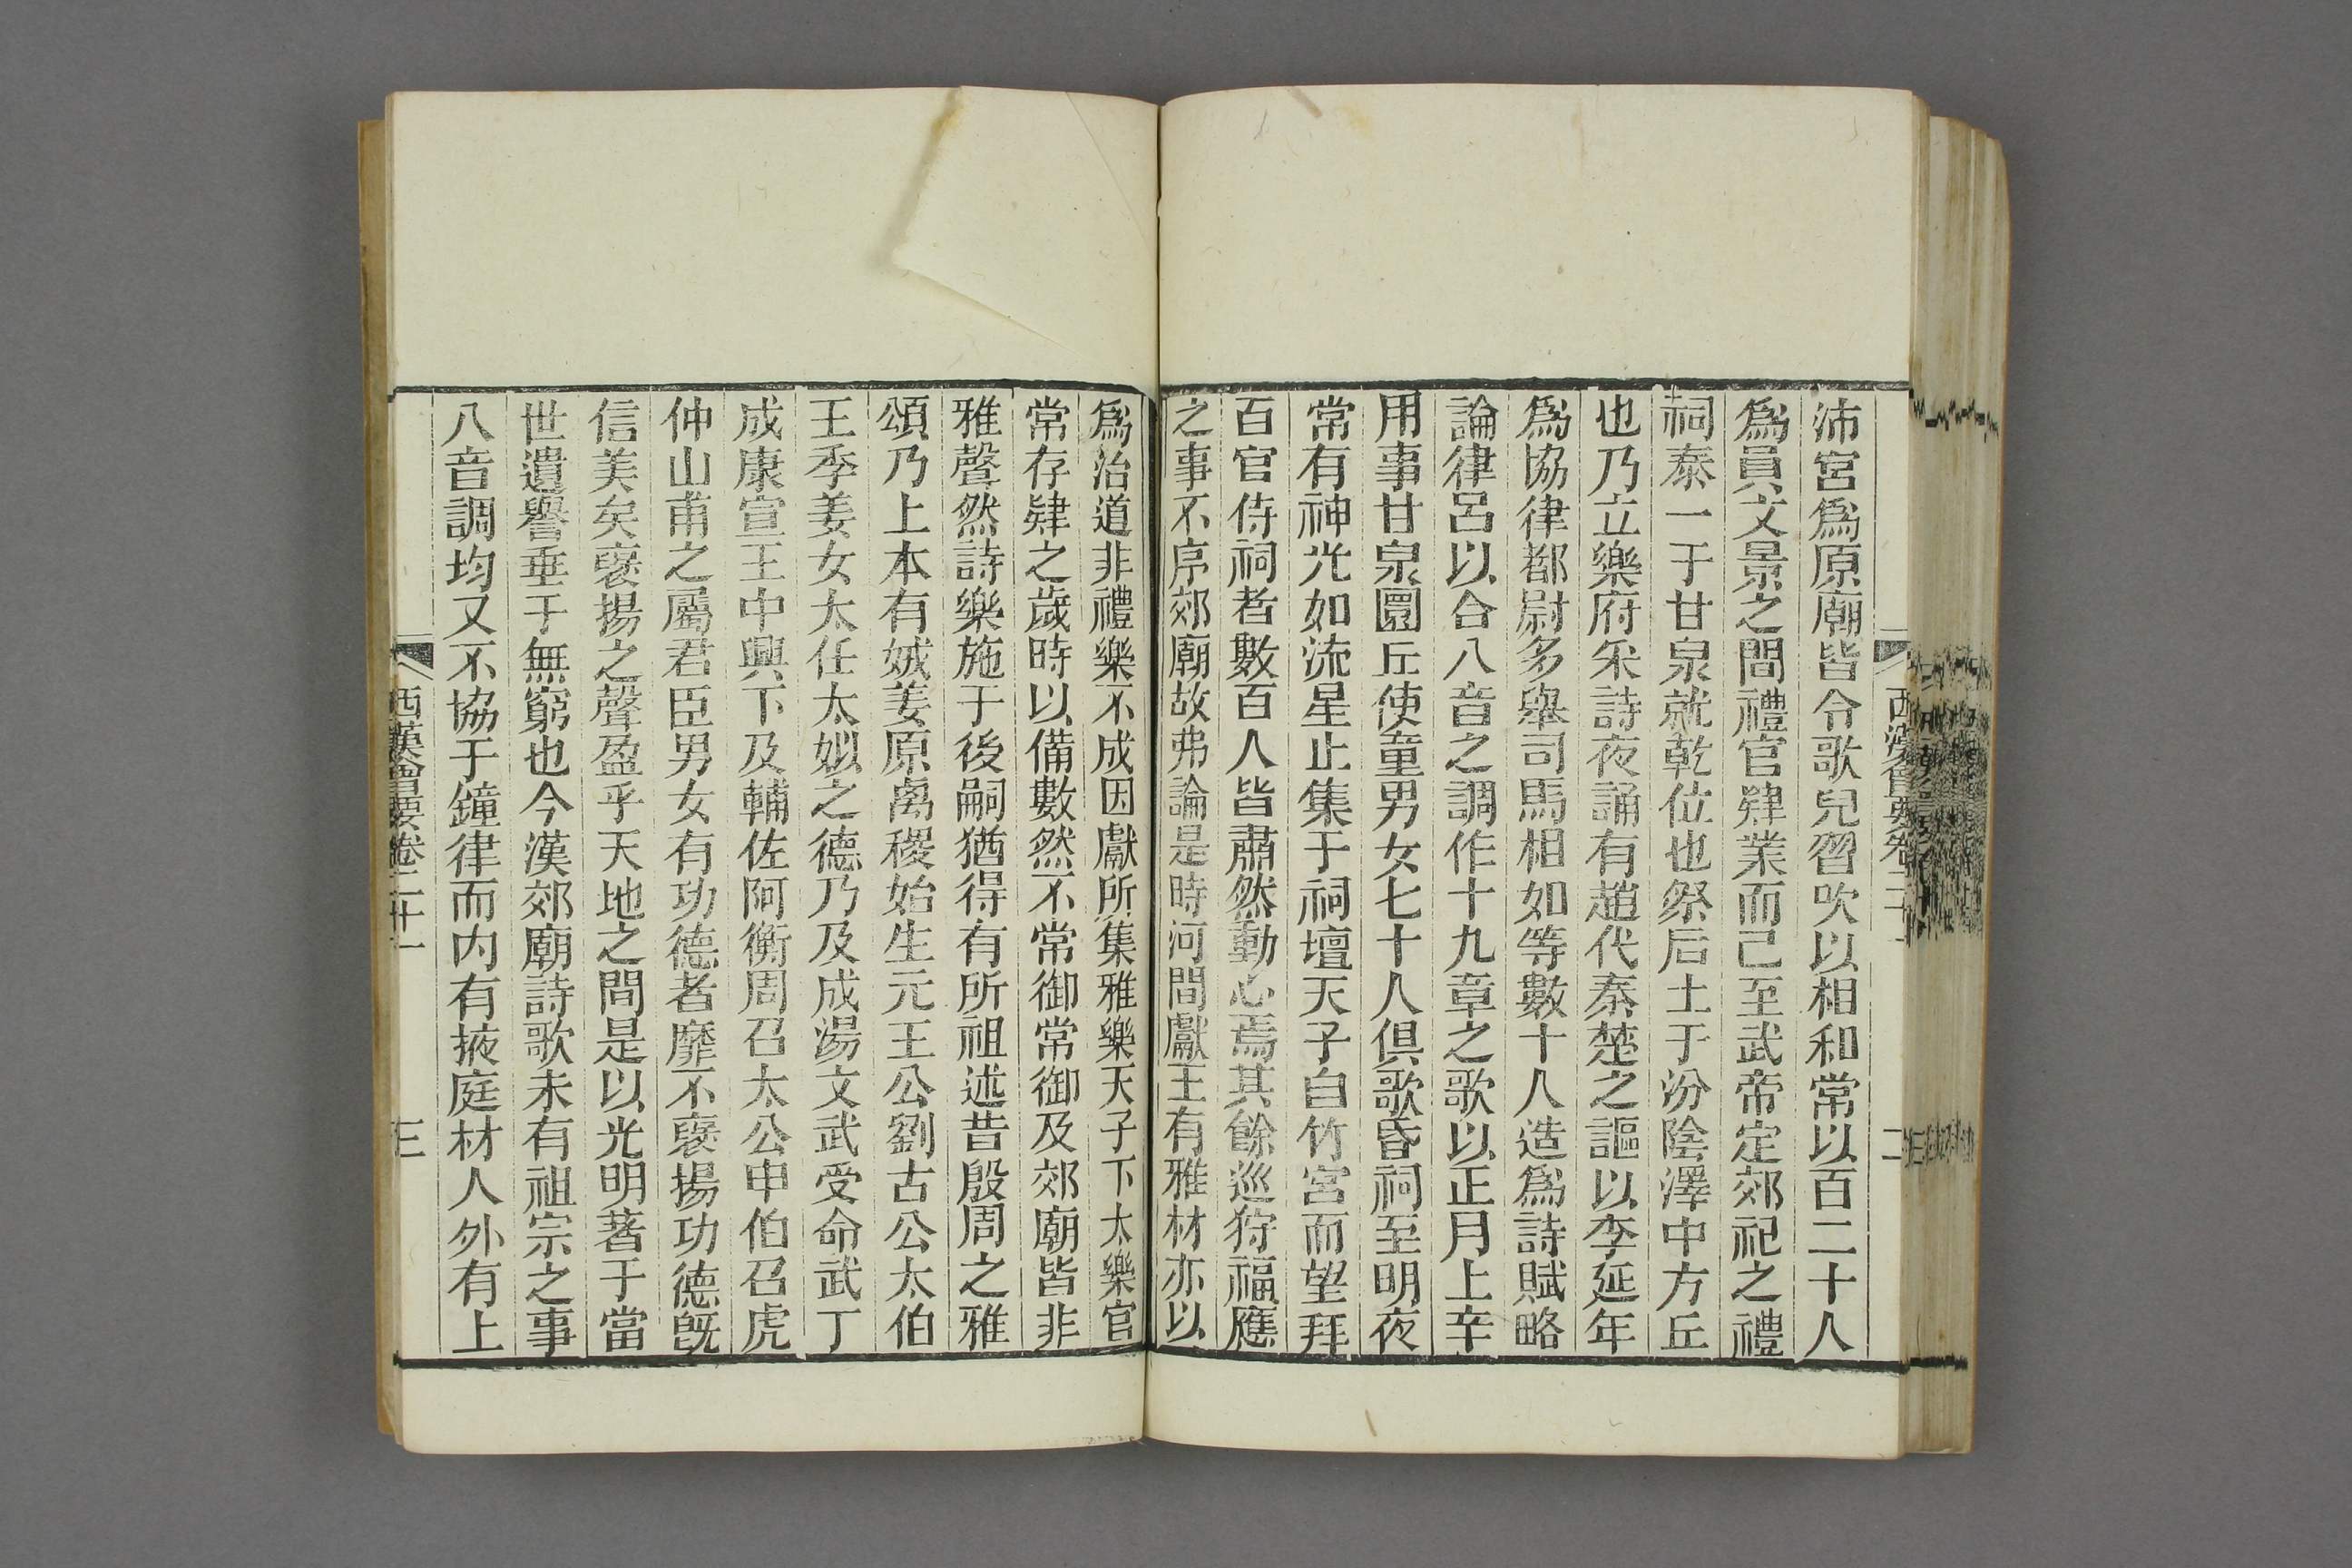 沛宮爲原廟皆令歌兒習吹以相和常以百二十人
爲員文景之間禮官肄業而已至武帝定郊祀之禮
祠泰一于甘泉就乾位也祭后土于汾陰澤中方丘
也乃立樂府采詩夜誦有趙代秦楚之謳以李延年
爲協律都尉多舉司馬相如等數十人造爲詩賦略
論律呂以合八音之調作十九章之歌以正月上辛
用事甘泉圜丘使童男女七十人俱歌昏祠至明夜
常有神光如流星止集于祠壇天子自竹宮而望拜
百官侍祠者數百人皆肅然動心焉其餘巡狩福應
之事不序郊廟故弗論是時河間獻王有雅材亦以
爲治道非禮樂不成因獻所集雅樂天子下太樂官
常存肄之歲時以備數然不常御常御及郊廟皆非
雅聲然詩樂施于後嗣猶得有所祖述昔殷周之雅
頌乃上本有娀姜原禼稷始生元王公劉古公太伯
王季姜女太任太姒之德乃及成湯文武受命武丁
成康宣王中興下及輔佐阿衡周召太公申伯召虎
仲山甫之屬君臣男女有功德者靡不襃揚功德旣
信美矣襃揚之聲盈乎天地之間是以光明著于當
世遺譽垂于無窮也今漢郊廟詩歌未有祖宗之事
八音調均又不協于鐘律而內有掖庭材人外有上
西漢會要卷二十一
三